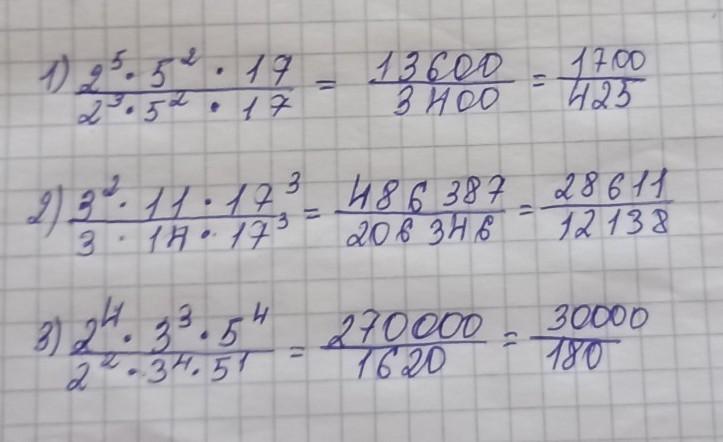 1) (2^5 · 5^2 · 17)/(2^3 · 5^2 · 17) = 13600/3400 = 1700/425
2) (3^2 · 11 · 17^3)/(3 · 14 · 17^3) = 486 387/206 346 = 28611/12138
3) (2^4 · 3^3 · 5^4)/(2^2 · 3^4 · 5^1) = 270000/1620 = 30000/180